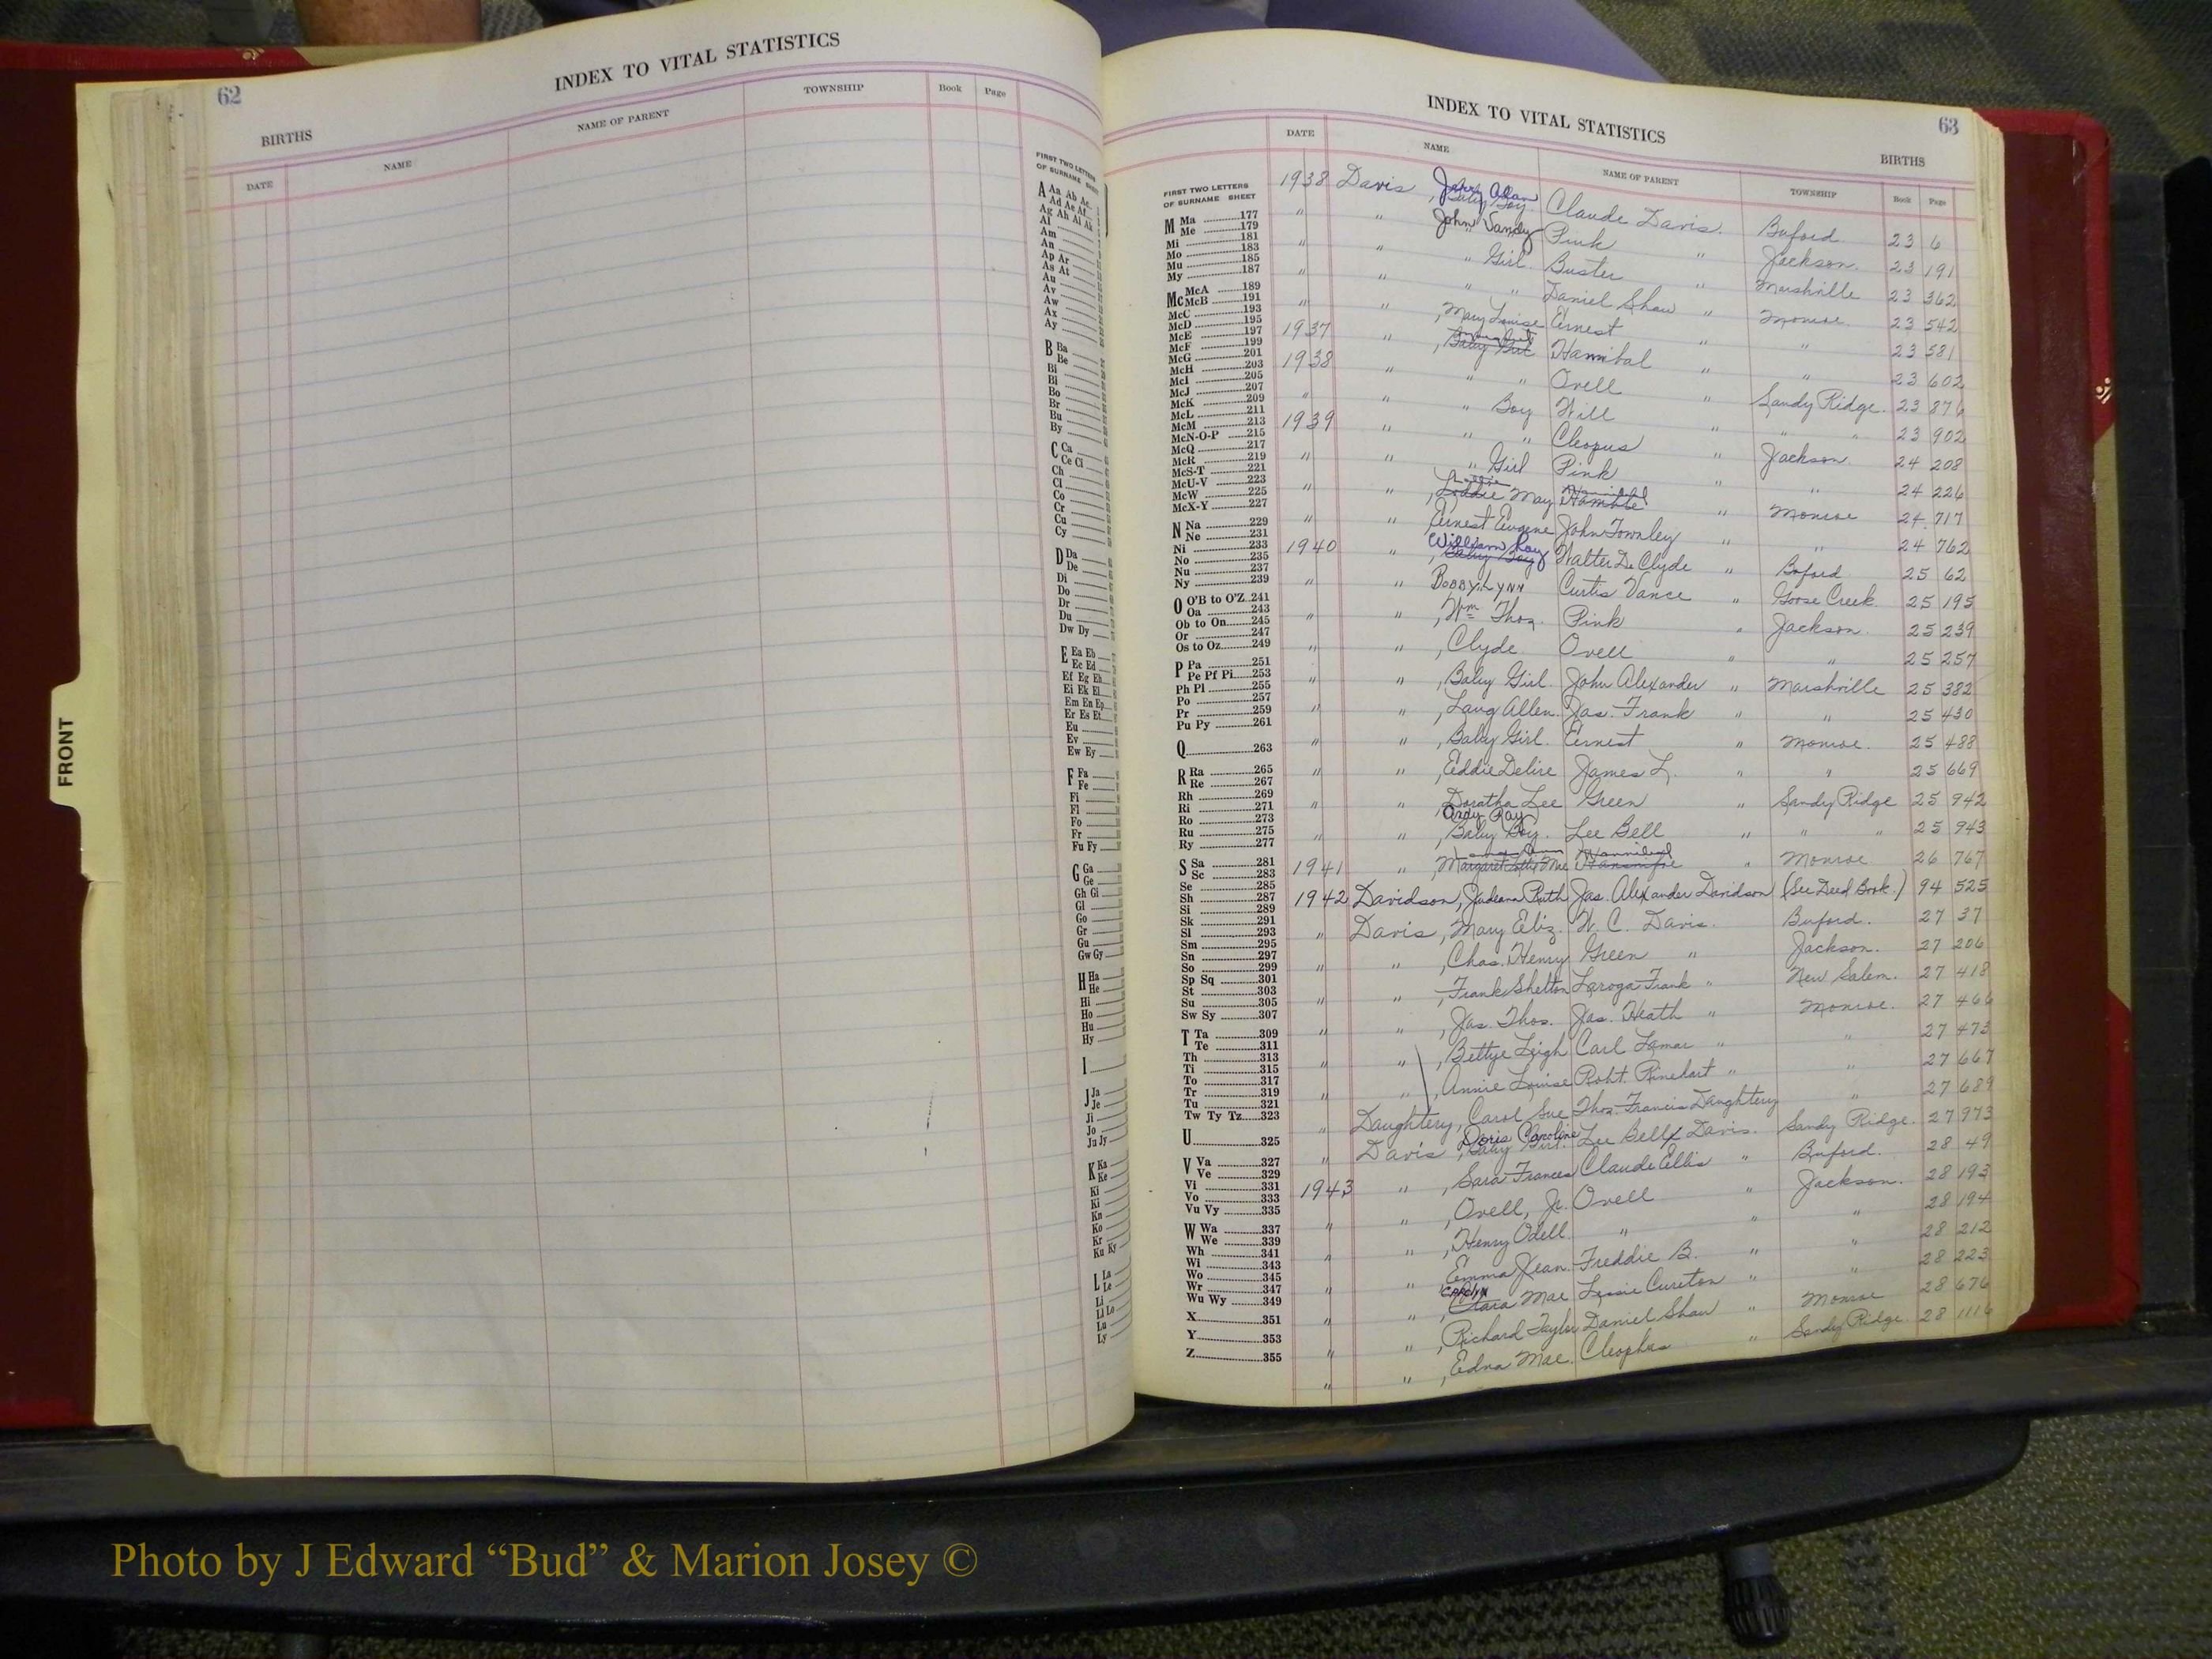 62
INDEX TO VITAL STATISTICS
BIRTHS
DATE NAME NAME OF PARENT TOWNSHIP Book Page
FIRST TWO LETTERS
OF SURNAME SHEET
A Aa Ab Ac
Ad Ae Af
Ag Ah Ai Ak
Al
Am
An
Ap Ar
As At
Au
Av
Aw
Ax
Ay
B Ba
Be
Bi
Bl
Bo
Br
Bu
By
C Ca
Ce Ci
Ch
Cl
Co
Cr
Cu
Cy
D Da
De
Di
Do
Dr
Du
Dw Dy
E Ea Eb
Ec Ed
Ef Eg Eh
Ei Ek El
Em En Ep
Er Es Et
Eu
Ev
Ew Ey
F Fa
Fe
Fi
Fl
Fo
Fr
Fu Fy
G Ga
Ge
Gh Gi
Gl
Go
Gr
Gu
Gw Gy
H Ha
He
Hi
Ho
Hu
Hy
I
J Ja
Je
Ji
Jo
Ju Jy
K Ka
Ke
Ki
Kl
Kn
Ko
Kr
Ku Ky
L La
Le
Li
Ll Lo
Lu
Ly
FRONT
INDEX TO VITAL STATISTICS
63
BIRTHS
DATE NAME NAME OF PARENT TOWNSHIP Book Page
FIRST TWO LETTERS
OF SURNAME SHEET
M Ma 177
Me 179
Mi 181
Mo 183
Mu 185
My 187
Mc McA 189
McB 191
McC 193
McD 195
McE 197
McF 199
McG 201
McH 203
McI 205
McJ 207
McK 209
McL 211
McM 213
McN-O-P 215
McQ 217
McR 219
McS-T 221
McU-V 223
McW 225
McX-Y 227
N Na 229
Ne 231
Ni 233
No 235
Nu 237
Ny 239
O O'B to O'Z 241
Oa 243
Ob to On 245
Or 247
Os to Oz 249
P Pa 251
Pe Pf Pi 253
Ph Pl 255
Po 257
Pr 259
Pu Py 261
Q 263
R Ra 265
Re 267
Rh 269
Ri 271
Ro 273
Ru 275
Ry 277
S Sa 281
Sc 283
Se 285
Sh 287
Si 289
Sk 291
Sl 293
Sm 295
Sn 297
So 299
Sp Sq 301
St 303
Su 305
Sw Sy 307
T Ta 309
Te 311
Th 313
Ti 315
To 317
Tr 319
Tu 321
Tw Ty Tz 323
U 325
V Va 327
Ve 329
Vi 331
Vo 333
Vu Vy 335
W Wa 337
We 339
Wh 341
Wi 343
Wo 345
Wr 347
Wu Wy 349
X 351
Y 353
Z 355
1938 Davis, Jerry Alan Baby Boy Claude Davis. Buford. 23 6
" " John Vandy Pink " Jackson. 23 191
" " " Girl Buster " Marshville 23 362
" " " " Daniel Shaw " Monroe. 23 542
1937 " , Mary Louise Ernest " " 23 581
1938 " , Baby Girl Hannibal " " 23 602
" " " " Ovell " Sandy Ridge. 23 876
1939 " " Boy Will " " " 23 902
" " " " Cleopus " Jackson. 24 208
" " " Girl Pink " " 24 226
" " , Loddie May Hannibal " Monroe 24 717
1940 " , Ernest Eugene John Townley " " 24 762
" " William Ray Baby Boy Walter De Clyde " Buford 25 62
" " Bobby Lynn Curtis Vance " Goose Creek. 25 195
" " , Wm Thos. Pink " Jackson. 25 239
" " , Clyde Ovell " " 25 257
" " , Baby Girl. John Alexander " Marshville 25 382
" " , Laug Allen. Jas. Frank " " 25 430
" " , Baby Girl. Ernest " Monroe. 25 488
" " , Eddie Delire James L. " " 25 669
" " , Doratha Lee Green " Sandy Ridge 25 942
" " , Ordy Ray Baby Boy. Lee Bell " " " 25 943
1941 " , Margaret Mae Hannibal " Monroe 26 767
1942 Davidson, Judeann Ruth Jas. Alexander Davidson (See Deed Book.) 94 525
" Davis, Mary Eliz. W. C. Davis. Buford. 27 37
" " , Chas. Henry Green " Jackson. 27 206
" " , Frank Shelton Laroga Frank " New Salem. 27 418
" " , Jas. Thos. Jas. Heath " Monroe. 27 466
" " , Bettye Leigh Carl Lamar " " 27 473
" " , Annie Louise Robt. Rinehart " " 27 667
" Daughtery, Carol Sue Thos. Francis Daughtery " 27 689
" Davis, Doris Caroline Baby Girl. Lee Bell Davis. Sandy Ridge. 27 973
1943 " , Sara Frances Claude Ellis " Buford. 28 49
" " , Ovell, Jr. Ovell " Jackson. 28 193
" " , Henry Odell " " " 28 194
" " , Emma Jean. Freddie B. " " 28 212
" " , Carolyn Clara Mae Lessie Cureton " " 28 223
" " , Richard Taylor Daniel Shaw " Monroe 28 676
" " , Edna Mae. Cleophus " Sandy Ridge. 28 1116
Photo by J Edward “Bud” & Marion Josey ©